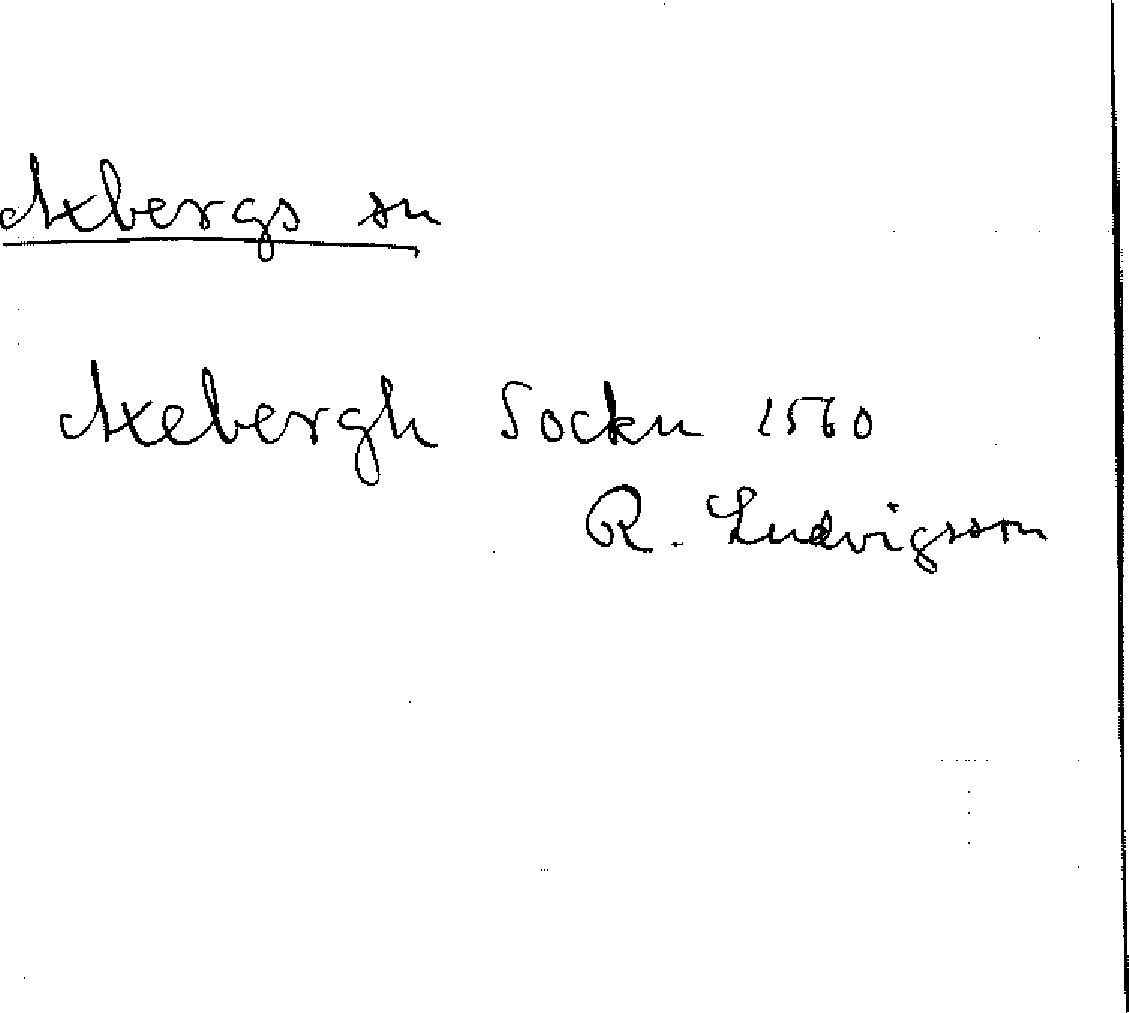 Axbergs sn
Axebergh Sockn 1560
R. Ludvigsson